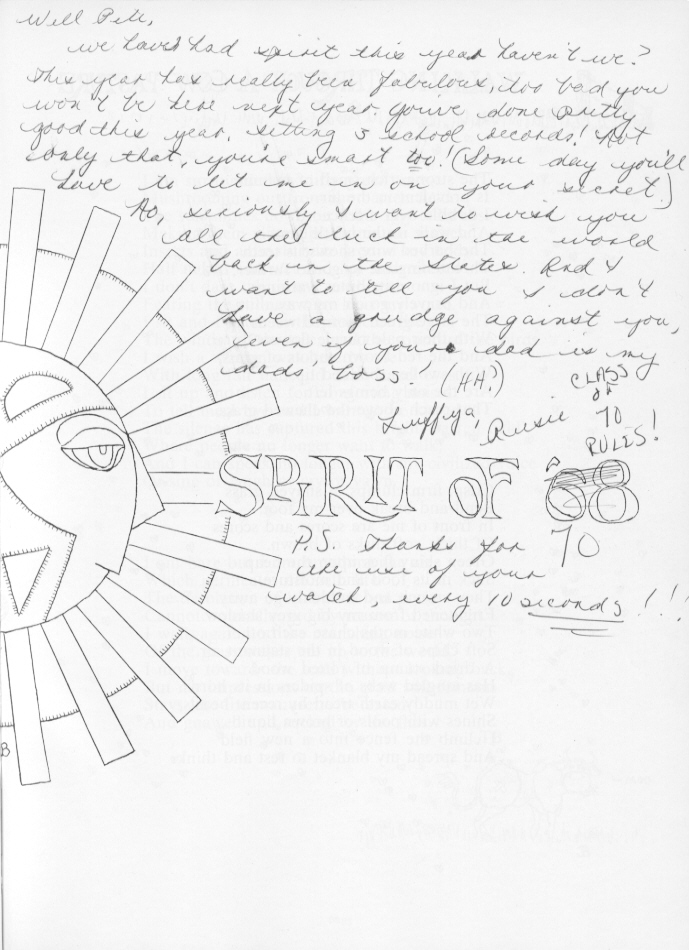 Well Pete,
we have had spirit this year haven't we?
This year has really been fabulous, too bad you
won't be here next year. You've done pretty
good this year, setting 3 school records! Not
only that, you're smart too! (Some day you'll
have to let me in on your secret.)
No, seriously I want to wish you
all the luck in the world
back in the States. And I
want to tell you I don't
have a grudge against you,
even if your dad is my
dads boss! (HH?)
CLASS
of
70
RULES!
SPIRIT OF '68
70
P.S. Thanks for
the use of your
watch, every 10 seconds!!!
B